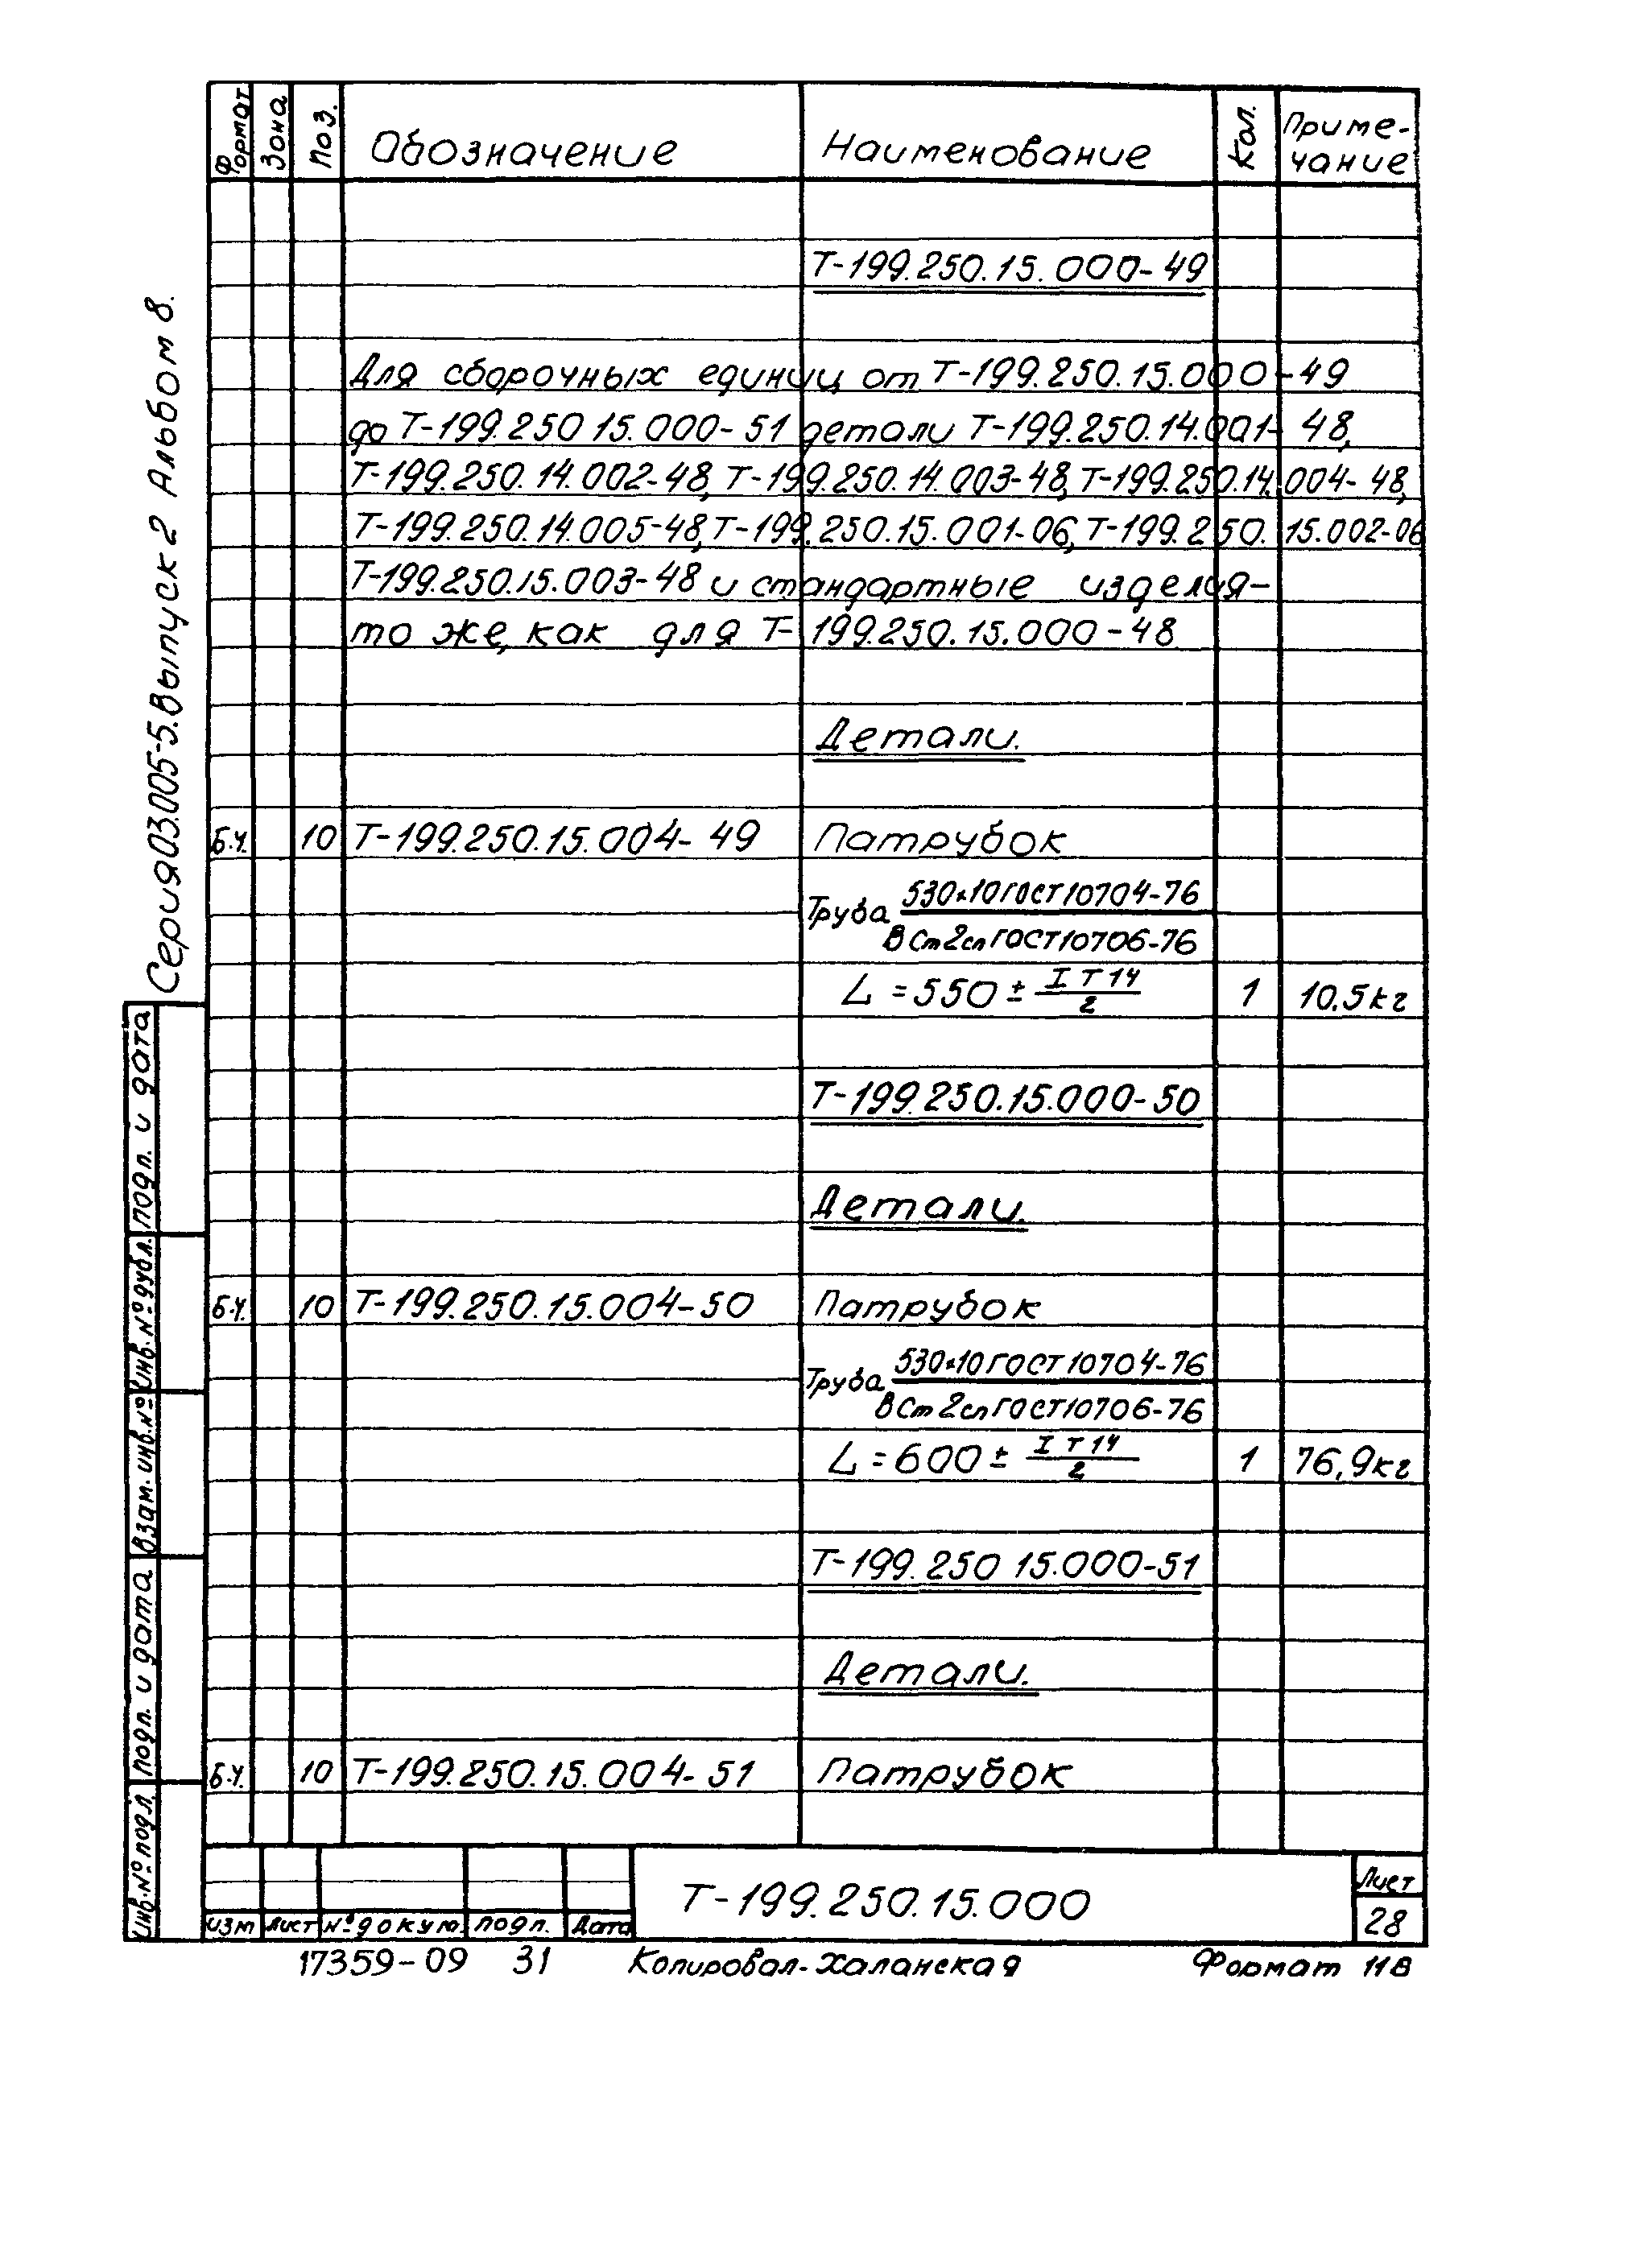 Формат Зона Поз. Обозначение Наименование Кол. Приме-
чание
Т-199.250.15.000-49
Для сборочных единиц от Т-199.250.15.000-49
до Т-199.250 15.000-51 детали Т-199.250.14.001-48,
Т-199.250.14.002-48, Т-199.250.14.003-48, Т-199.250.14.004-48,
Т-199.250.14.005-48, Т-199.250.15.001-06, Т-199.250.15.002-06
Т-199.250.15.003-48 и стандартные изделия-
то же, как для Т-199.250.15.000-48
Детали.
Б.Ч. 10 Т-199.250.15.004-49 Патрубок
Труба 530×10 ГОСТ 10704-76
В Ст 2сп ГОСТ 10706-76
L = 550 ± IT14
2
1 10,5кг
Т-199.250.15.000-50
Детали.
Б.Ч. 10 Т-199.250.15.004-50 Патрубок
Труба 530×10 ГОСТ 10704-76
В Ст 2сп ГОСТ 10706-76
L = 600 ± IT14
2
1 76,9кг
Т-199.250 15.000-51
Детали.
Б.Ч. 10 Т-199.250.15.004-51 Патрубок
Изм Лист № докум. Подп. Дата
Т-199.250.15.000
Лист
28
17359-09 31 Копировал-Халанская Формат 11В
Серия 03.005-5. Выпуск 2 Альбом 8.
Подп. и дата
Инв. № дубл.
Взам. инв. №
Подп. и дата
Инв. № подл